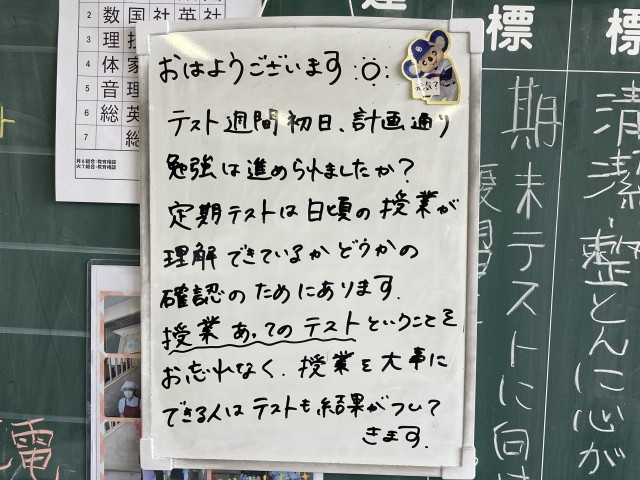 おはようございます
元気?
テスト週間初日、計画通り
勉強は進められましたか?
定期テストは日頃の授業が
理解できているかどうかの
確認のためにあります.
授業あってのテストということを
お忘れなく.授業を大事に
できる人はテストも結果がついて
きます.
2 数 国 社 英 社
3 理
4 体
5 音 理
6 総 英
7 総
標
期末テストに向け
標
清潔・整とんに心が
電